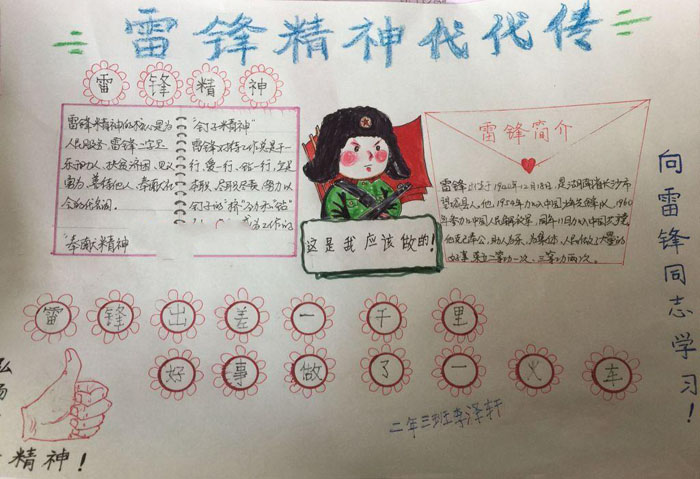 雷锋精神代代传
雷锋精神
雷锋精神的核心是为
人民服务,雷锋一字里
乐于助人,扶贫济困,见义
勇为,善待他人,奉献
会的代名词。
"奉献"精神
"钉子精神"
雷锋对待工作总是干一
行,爱一行,钻一行,立足
本职,尽职尽责,努力以
钉子的"挤"劲和"钻"
工作的
这是我应该做的!
雷锋简介
雷锋出生于1940年12月18日,是湖南省长沙市
望城县人,他1954年加入中国少年先锋队,1960
年参加中国人民解放军,同年11月加入中国共产党
他克己奉公,助人为乐,为集体,人民做了大量的
好事,二等功一次,三等功两次。
向雷锋同志学习!
雷锋出差一千里
好事做了一火车
弘
扬
精神!
二年三班李泽轩